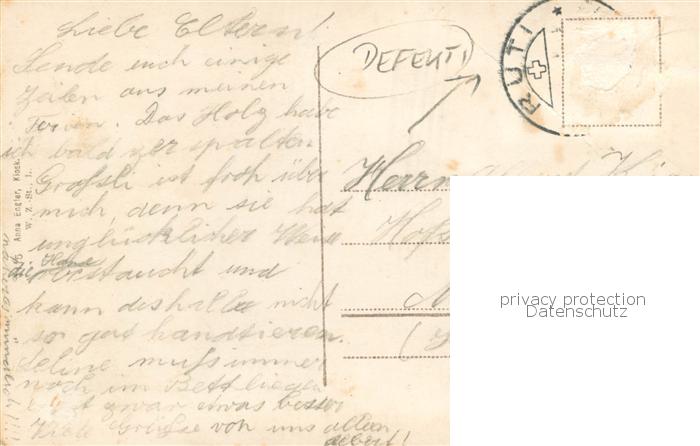 Liebe Eltern!
Sende euch einige
Zeilen aus meinen
Ferien. Das Holz habe
ich bald zerspalten
Grossli ist froh über
mich, denn sie hat
unglücklicher Weise
die Hand verstaucht und
kann deshalb nicht
so gut handtieren.
Seline muss immer
noch im Bett liegen
ist zwar etwas besser
Viele Grüsse von uns allen
Albert!
Anna Engler, Kiosk,
W. Z.-St. I.
DEFEKT!
RUTI
Herrn
privacy protection
Datenschutz